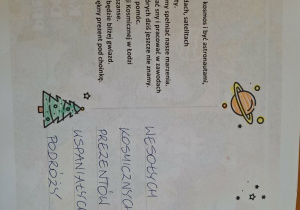 kosmos i być astronautami,
ach, satelitach
my spełniać nasze marzenia.
ać sny i pracować w zawodach
órych dziś jeszcze nie znamy.
pomóc.
i Kosmicznej w Łodzi
szanse.
będzie bliżej gwiazd.
ękny prezent pod choinkę.
WESOŁYCH
KOSMICZNYCH
PREZENTÓW
USPANIAŁYCH
PODRÓŻY